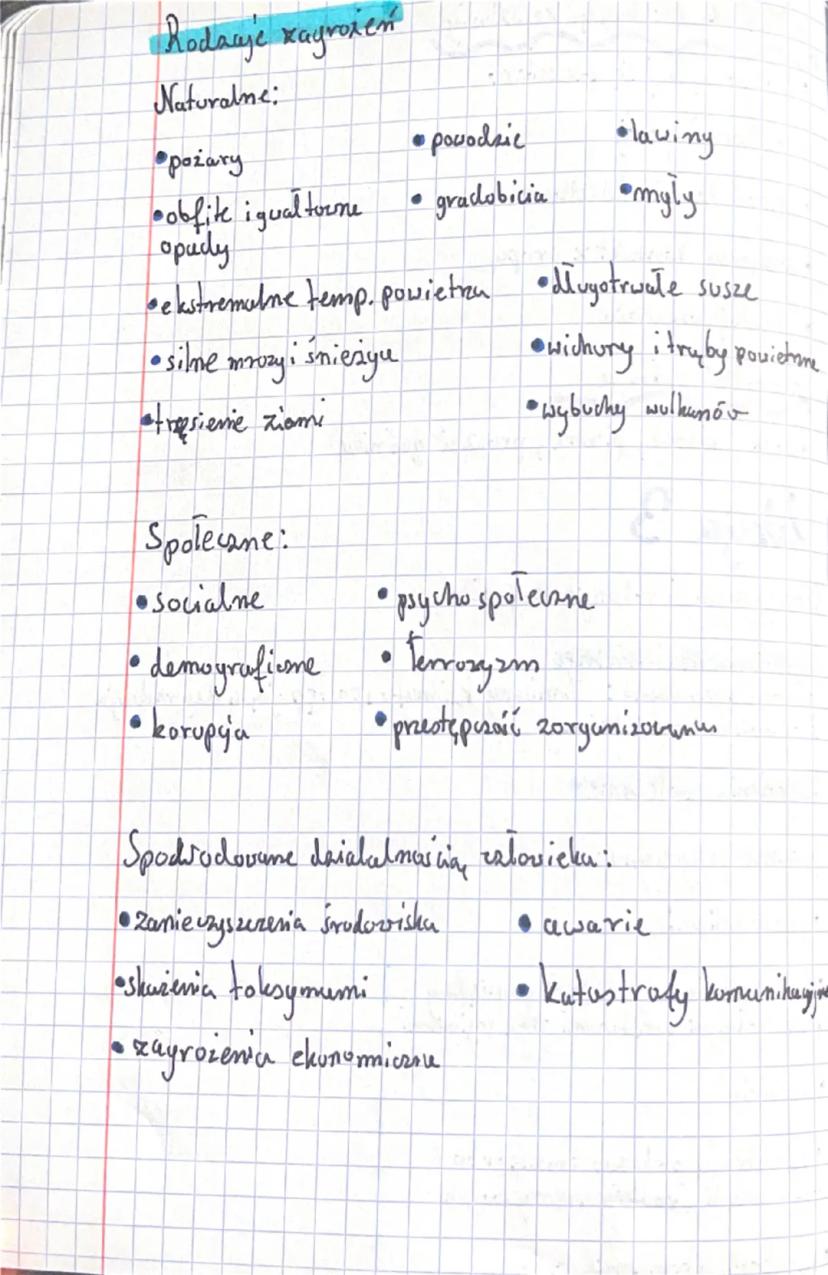 Rodzaje zagrożeń
Naturalne:
•pożary •powodzie •lawiny
•obfite i gwałtowne • gradobicia •mgły
opady
•ekstremalne temp. powietrza •długotrwałe susze
•silne mrozy i śnieżyce •wichury i trąby powietrzne
•trzęsienie ziemi •wybuchy wulkanów
Społeczne:
•socialne •psychospołeczne
• demograficzne • terroryzm
• korupcja •przestępczość zorganizowana
Spodwodowane działalnością człowieka:
•zanieczyszczenia środowiska • awarie
•skażenia toksynami • katastrofy komunikacyjne
• zagrożenia ekonomiczne